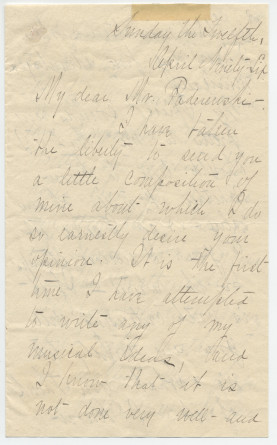 Sunday the Twelfth,
April Ninety Six
My dear Mr. Paderewski -
I have taken
the liberty to send you
a little composition of
mine about which I do
so earnestly desire your
opinion. It is the first
time I have attempted
to write any of my
musical ideas, and
I know that it is
not done very well - and